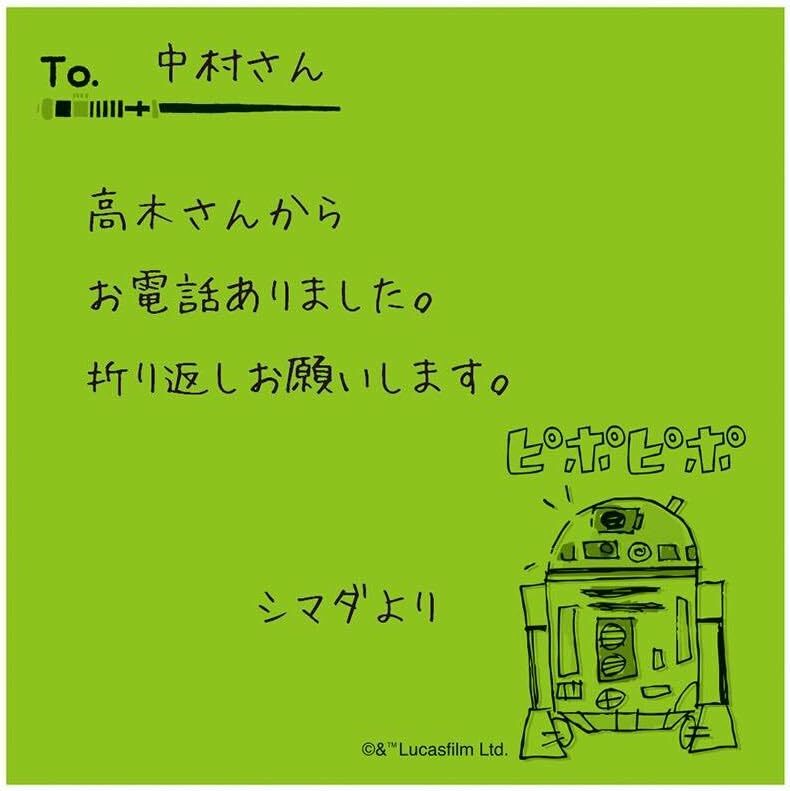 To. 中村さん
高木さんから
お電話ありました。
折り返しお願いします。
ピポピポ
シマダより
©&™Lucasfilm Ltd.